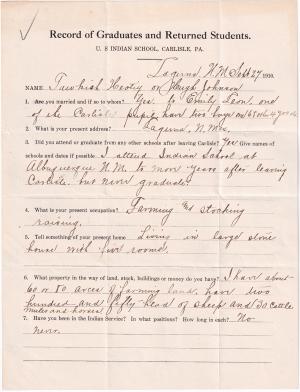 Record of Graduates and Returned Students.
U. S INDIAN SCHOOL, CARLISLE, PA.
Laguna, N.M. Sept 27 1910.
NAME Hugh Johnson
1. Are you married and if so to whom? Yes. to Emily Leon, one
of the Carlisle pupils have two boys one
2. What is your present address? Laguna, N. Mex.
3. Did you attend or graduate from any other schools after leaving Carlisle? Yes Give names of
schools and dates if possible. I attend Indian School at
Albuquerque N.M. two more years after leaving
Carlisle, but never graduate.
4. What is your present occupation? Farming and stocking
raising.
5. Tell something of your present home. Living in large stone
house with five rooms.
6. What property in the way of land, stock, buildings or money do you have? I have about
60 or 80 acres of farming land, have two
hundred and fifty head of sheep and 30 cattle
mules and horses
7. Have you been in the Indian Service? In what positions? How long in each? No
never.